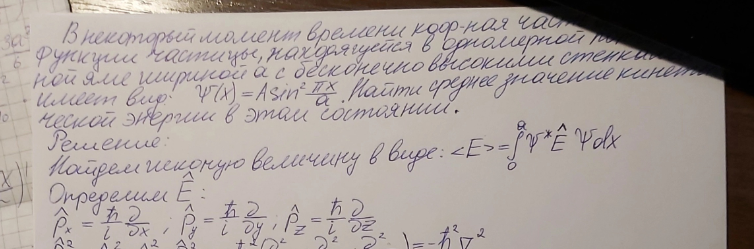 В некоторый момент времени коор-ная част
функции частицы, находящегося в одномерной
ной яме шириной a с бесконечно высокими стенка
имеет вид: Ψ(x) = A sin² πx/a. Найти среднее значение кинети
ческой энергии в этом состоянии.
Решение:
Найдем искомую величину в виде: <E> = ∫₀ᵃ Ψ* Ê Ψ dx
Определим Ê:
p̂ₓ = ħ/i ∂/∂x ; p̂_y = ħ/i ∂/∂y ; p̂_z = ħ/i ∂/∂z
3a²
6